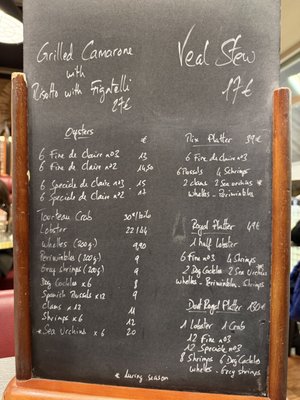 Grilled Camarone
with
Risotto with Figatelli
27€
Veal Stew
17€
Oysters
€
6 Fine de Claire n°3 13
6 Fine de Claire n°2 14,50
6 Speciale de Claire n°3 15
6 Speciale de Claire n°2 17
Tourteau Crab 30€/kilo
Lobster
Whelks (200g) 9,90
Periwinkles (200g) 9
Grey shrimps (200g) 9
Dog Cockles x 6 8
Spanish Mussels x12 9
Clams x 12 11
Shrimps x 6 12
* Sea Urchins x 6 20
Mix Platter 39€
6 Fine de Claire n°3
6 Mussels 4 Shrimps
2 clams 2 Sea Urchins *
Whelks - Periwinkles
Royal Platter 49€
1 half Lobster
6 Fine n°3 4 Shrimps
2 Dog Cockles 2 Sea Urchins
Whelks - Periwinkles - Shrimps
Duet Royal Platter 130€
1 Lobster 1 Crab
12 Fine n°3
12 Speciale n°3
8 Shrimps 6 Dog Cockles
Whelks - Grey shrimps
* during season